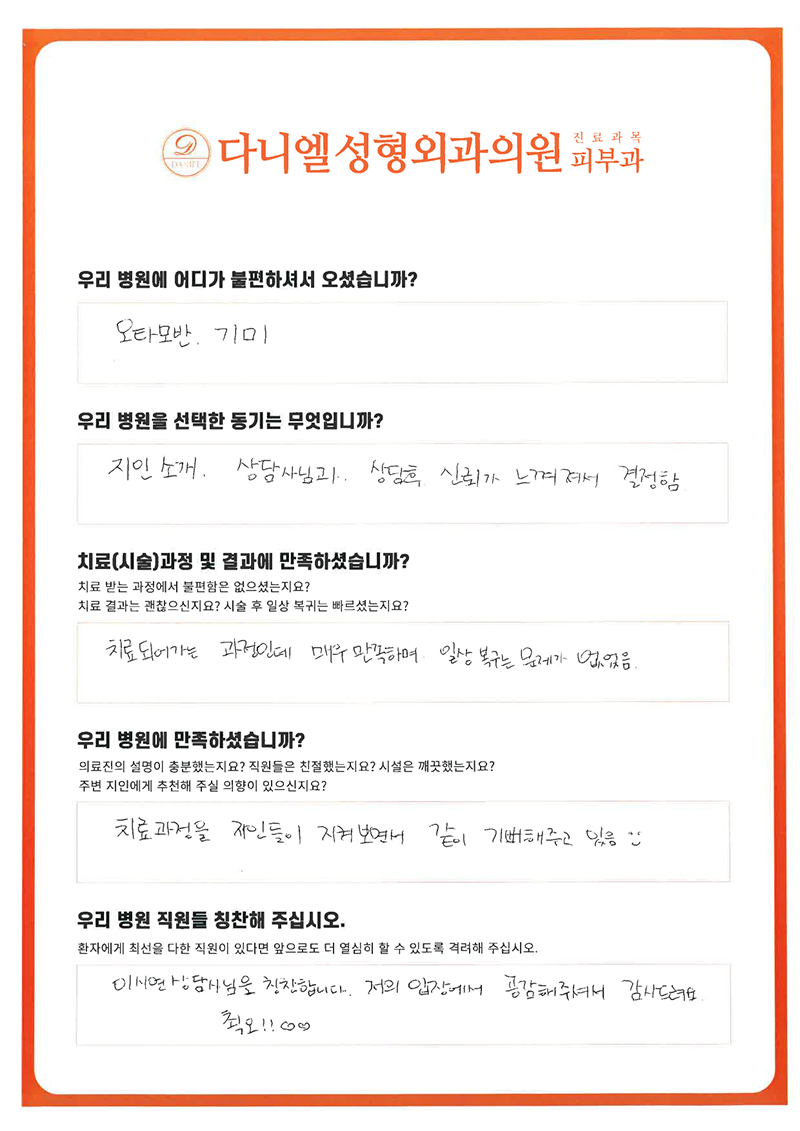 D
DANIEL
다니엘성형외과의원
진료과목
피부과
우리 병원에 어디가 불편하셔서 오셨습니까?
오타모반. 기미
우리 병원을 선택한 동기는 무엇입니까?
지인소개. 상담사님과.. 상담후 신뢰가 느껴져서 결정함.
치료(시술)과정 및 결과에 만족하셨습니까?
치료 받는 과정에서 불편함은 없으셨는지요?
치료 결과는 괜찮으신지요? 시술 후 일상 복귀는 빠르셨는지요?
치료되어가는 과정인데 매우 만족하며 일상 복구는 문제가 없었음.
우리 병원에 만족하셨습니까?
의료진의 설명이 충분했는지요? 직원들은 친절했는지요? 시설은 깨끗했는지요?
주변 지인에게 추천해 주실 의향이 있으신지요?
치료과정을 지인들이 지켜보면서 같이 기뻐해주고 있음
우리 병원 직원들 칭찬해 주십시오.
환자에게 최선을 다한 직원이 있다면 앞으로도 더 열심히 할 수 있도록 격려해 주십시오.
이시연상담사님을 칭찬합니다. 저의 입장에서 공감해주셔서 감사드려요.
최오!!♡♡